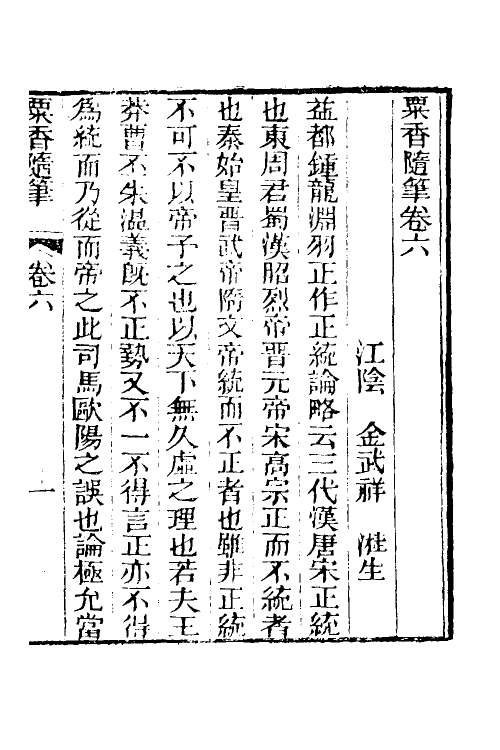 粟香隨筆卷六
江陰 金武祥 溎生
益都鍾龍淵羽正作正統論略云三代漢唐宋正統
也東周君蜀漢昭烈帝晋元帝宋高宗正而不統者
也秦始皇晋武帝隋文帝統而不正者也雖非正統
不可不以帝予之也以天下無久虛之理也若夫王
莽曹丕朱溫義旣不正勢又不一不得言正亦不得
爲統而乃從而帝之此司馬歐陽之誤也論極允當
粟香隨筆 卷六 一